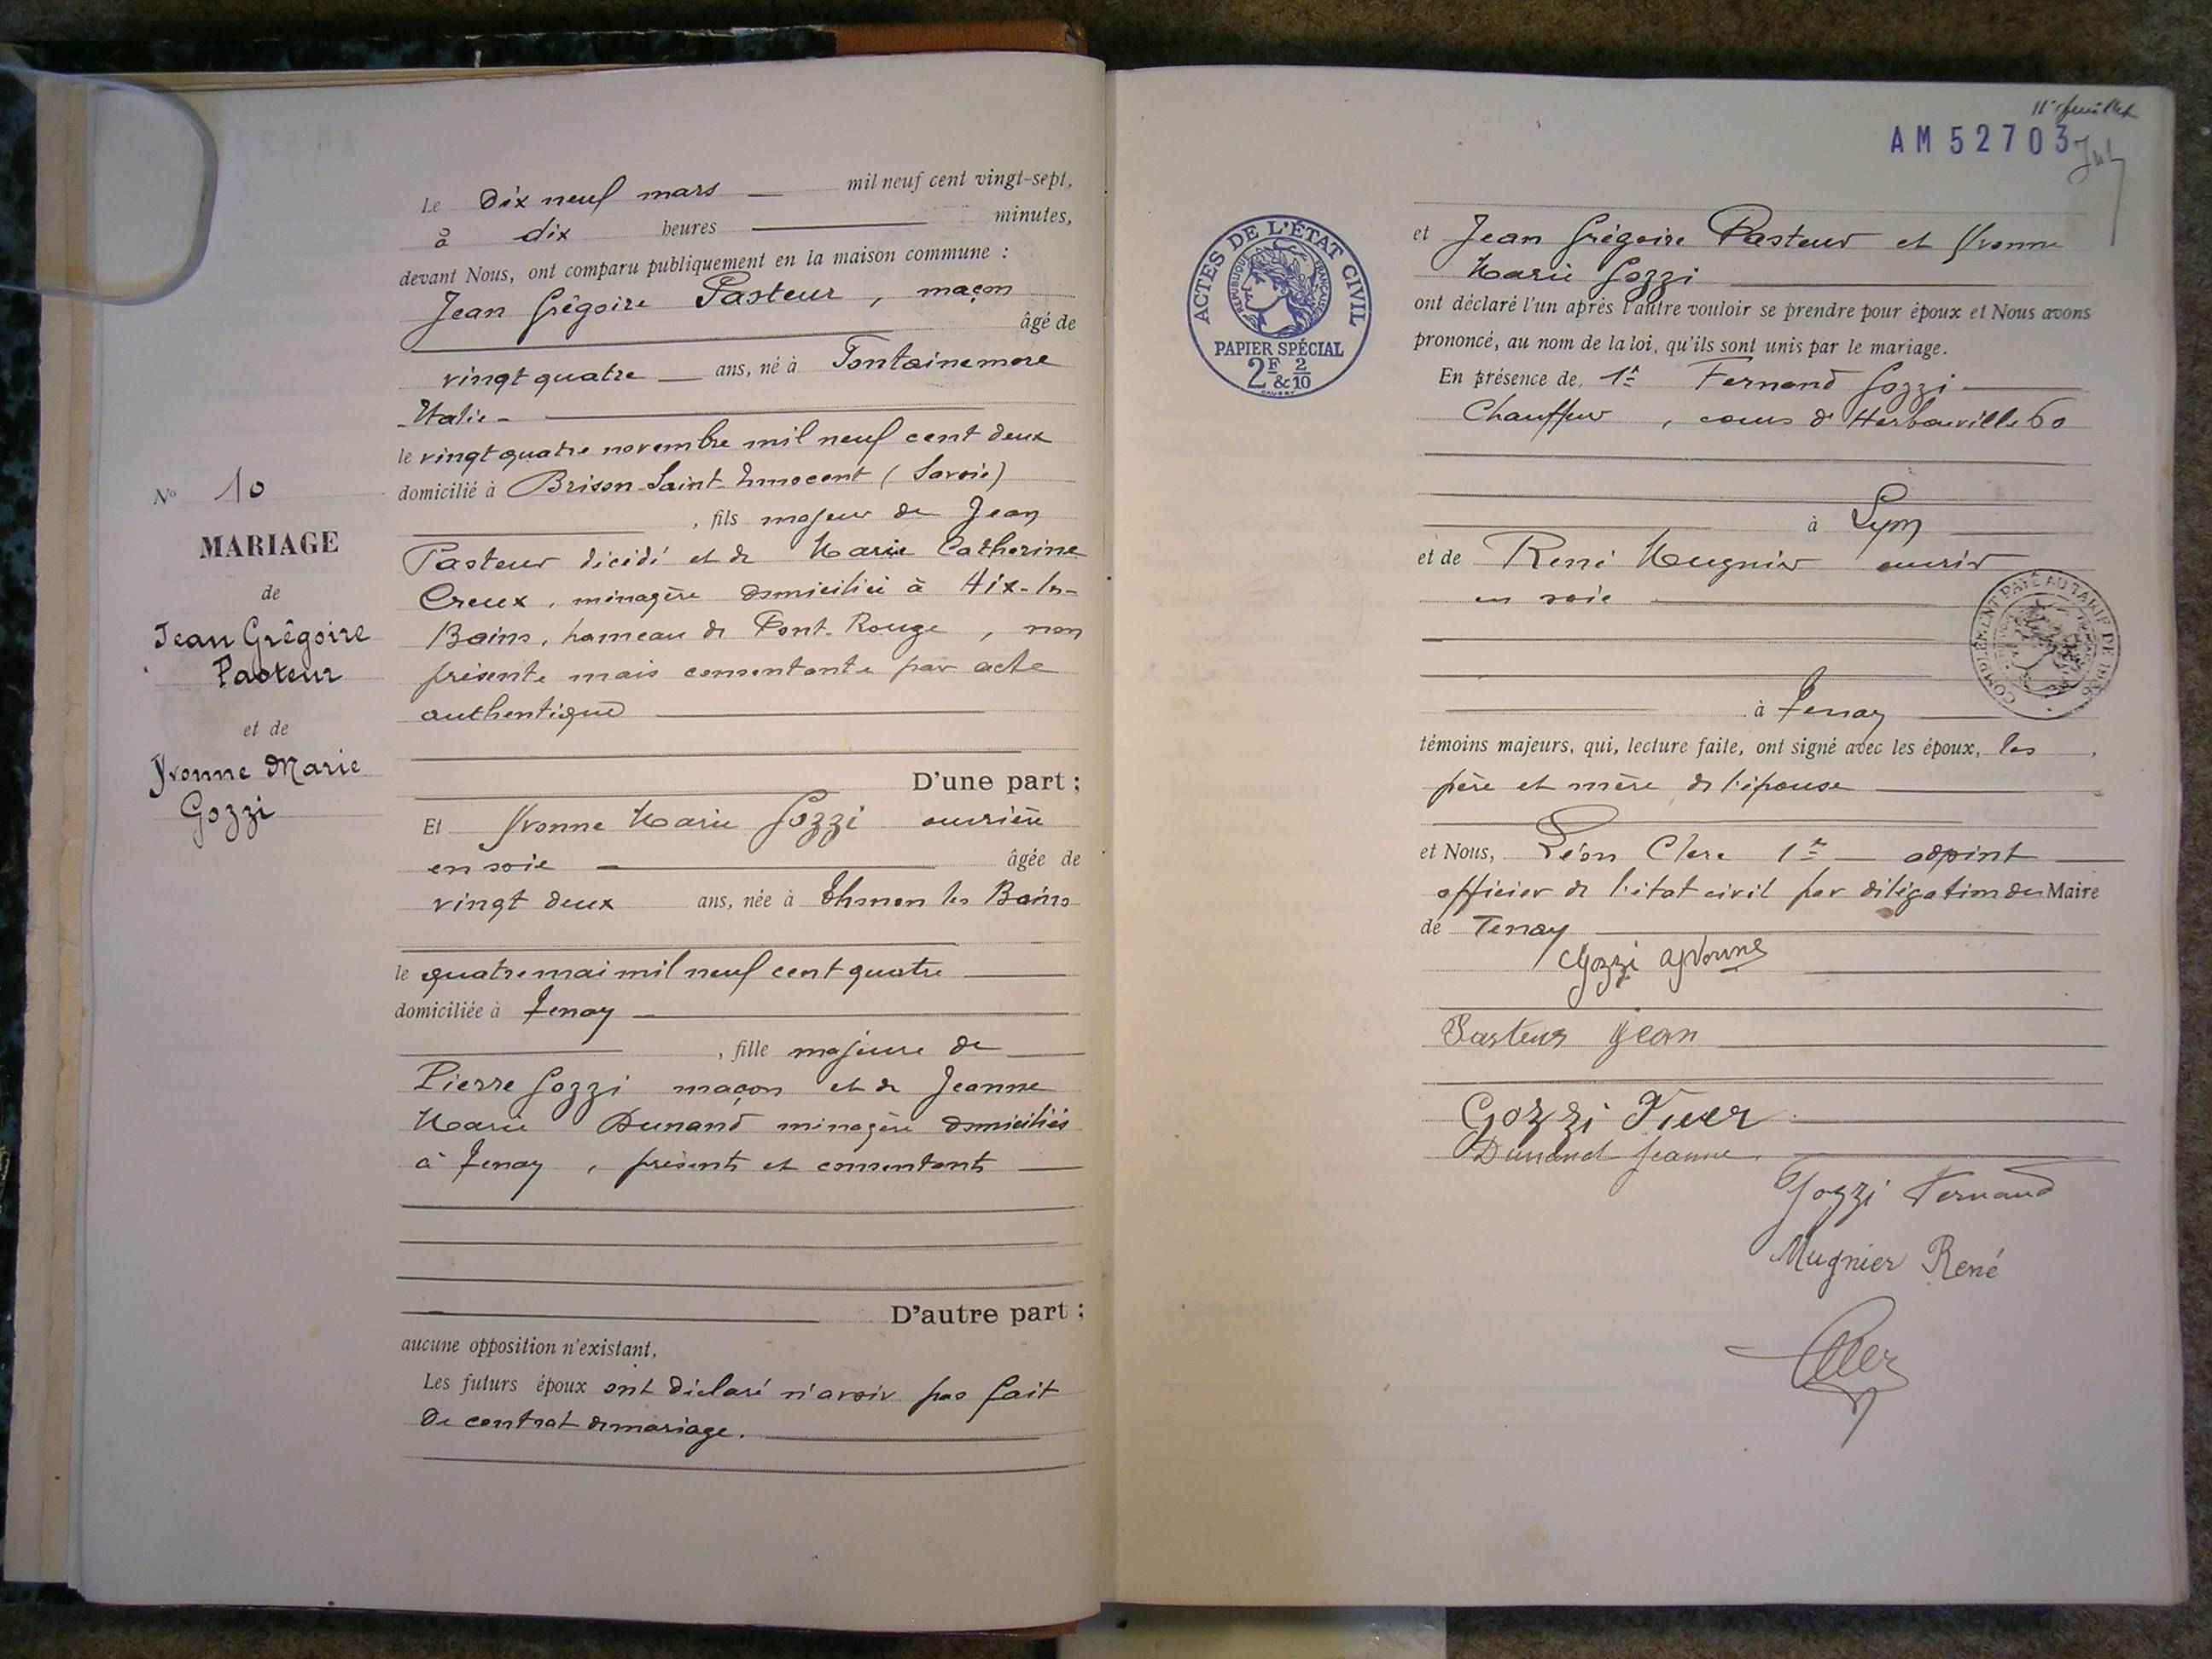 Le Dix neuf mars mil neuf cent vingt-sept,
à dix heures minutes,
devant Nous, ont comparu publiquement en la maison commune :
Jean Grégoire Pasteur, maçon
âgé de
vingt quatre ans, né à Fontainemore
Italie
le vingt quatre novembre mil neuf cent deux
domicilié à Brison-Saint-Innocent (Savoie)
, fils majeur de Jean
Pasteur décédé et de Marie Catherine
Creux, ménagère domiciliée à Aix-les-
Bains, hameau de Pont-Rouge, non
présente mais consentante par acte
authentique
D'une part ;
Et Yvonne Marie Gozzi ouvrière
en soie âgée de
vingt deux ans, née à Thonon les Bains
le quatre mai mil neuf cent quatre
domiciliée à Tenay
, fille majeure de
Pierre Gozzi maçon et de Jeanne
Marie Dunand ménagère domiciliés
à Tenay, présents et consentants
D'autre part ;
aucune opposition n'existant,
Les futurs époux ont déclaré n'avoir pas fait
de contrat de mariage.
N° 10
MARIAGE
de
Jean Grégoire
Pasteur
et de
Yvonne Marie
Gozzi
11e feuillet
AM 52703
ACTES DE L'ÉTAT CIVIL
RÉPUBLIQUE FRANÇAISE
PAPIER SPÉCIAL
2F & 2/10
et Jean Grégoire Pasteur et Yvonne
Marie Gozzi
ont déclaré l'un après l'autre vouloir se prendre pour époux et Nous avons
prononcé, au nom de la loi, qu'ils sont unis par le mariage.
En présence de 1° Fernand Gozzi
Chauffeur, cours d'Herbouville 60
à Lyon
et de René Mugnier ouvrier
en soie
COMPLÉMENT PAYÉ AU TARIF DE 1926
à Tenay
témoins majeurs, qui, lecture faite, ont signé avec les époux, les
père et mère de l'épouse
et Nous, Léon Clerc 1er adjoint
officier de l'état civil par délégation du Maire
de Tenay
Gozzi Yvonne
Pasteur Jean
Gozzi Pier
Dunand Jeanne
Gozzi Fernand
Mugnier René